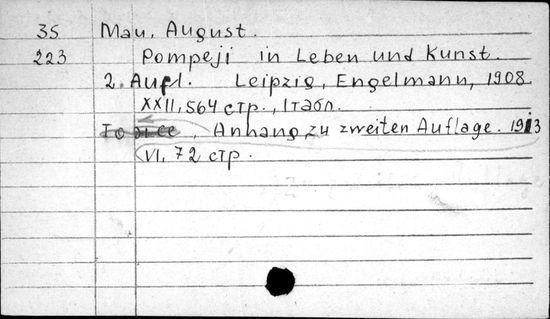 35 Mau, August.
223 Pompeji in Leben und Kunst.
2. Aufl. Leipzig, Engelmann, 1908.
XXII, 564 стр., 1 табл.
То же, Anhang zu zweiten Auflage. 1913
VI, 72 стр.